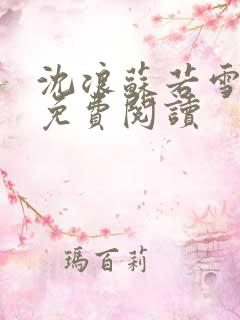 沈浪蘇若雪
免費閱讀
瑪百莉